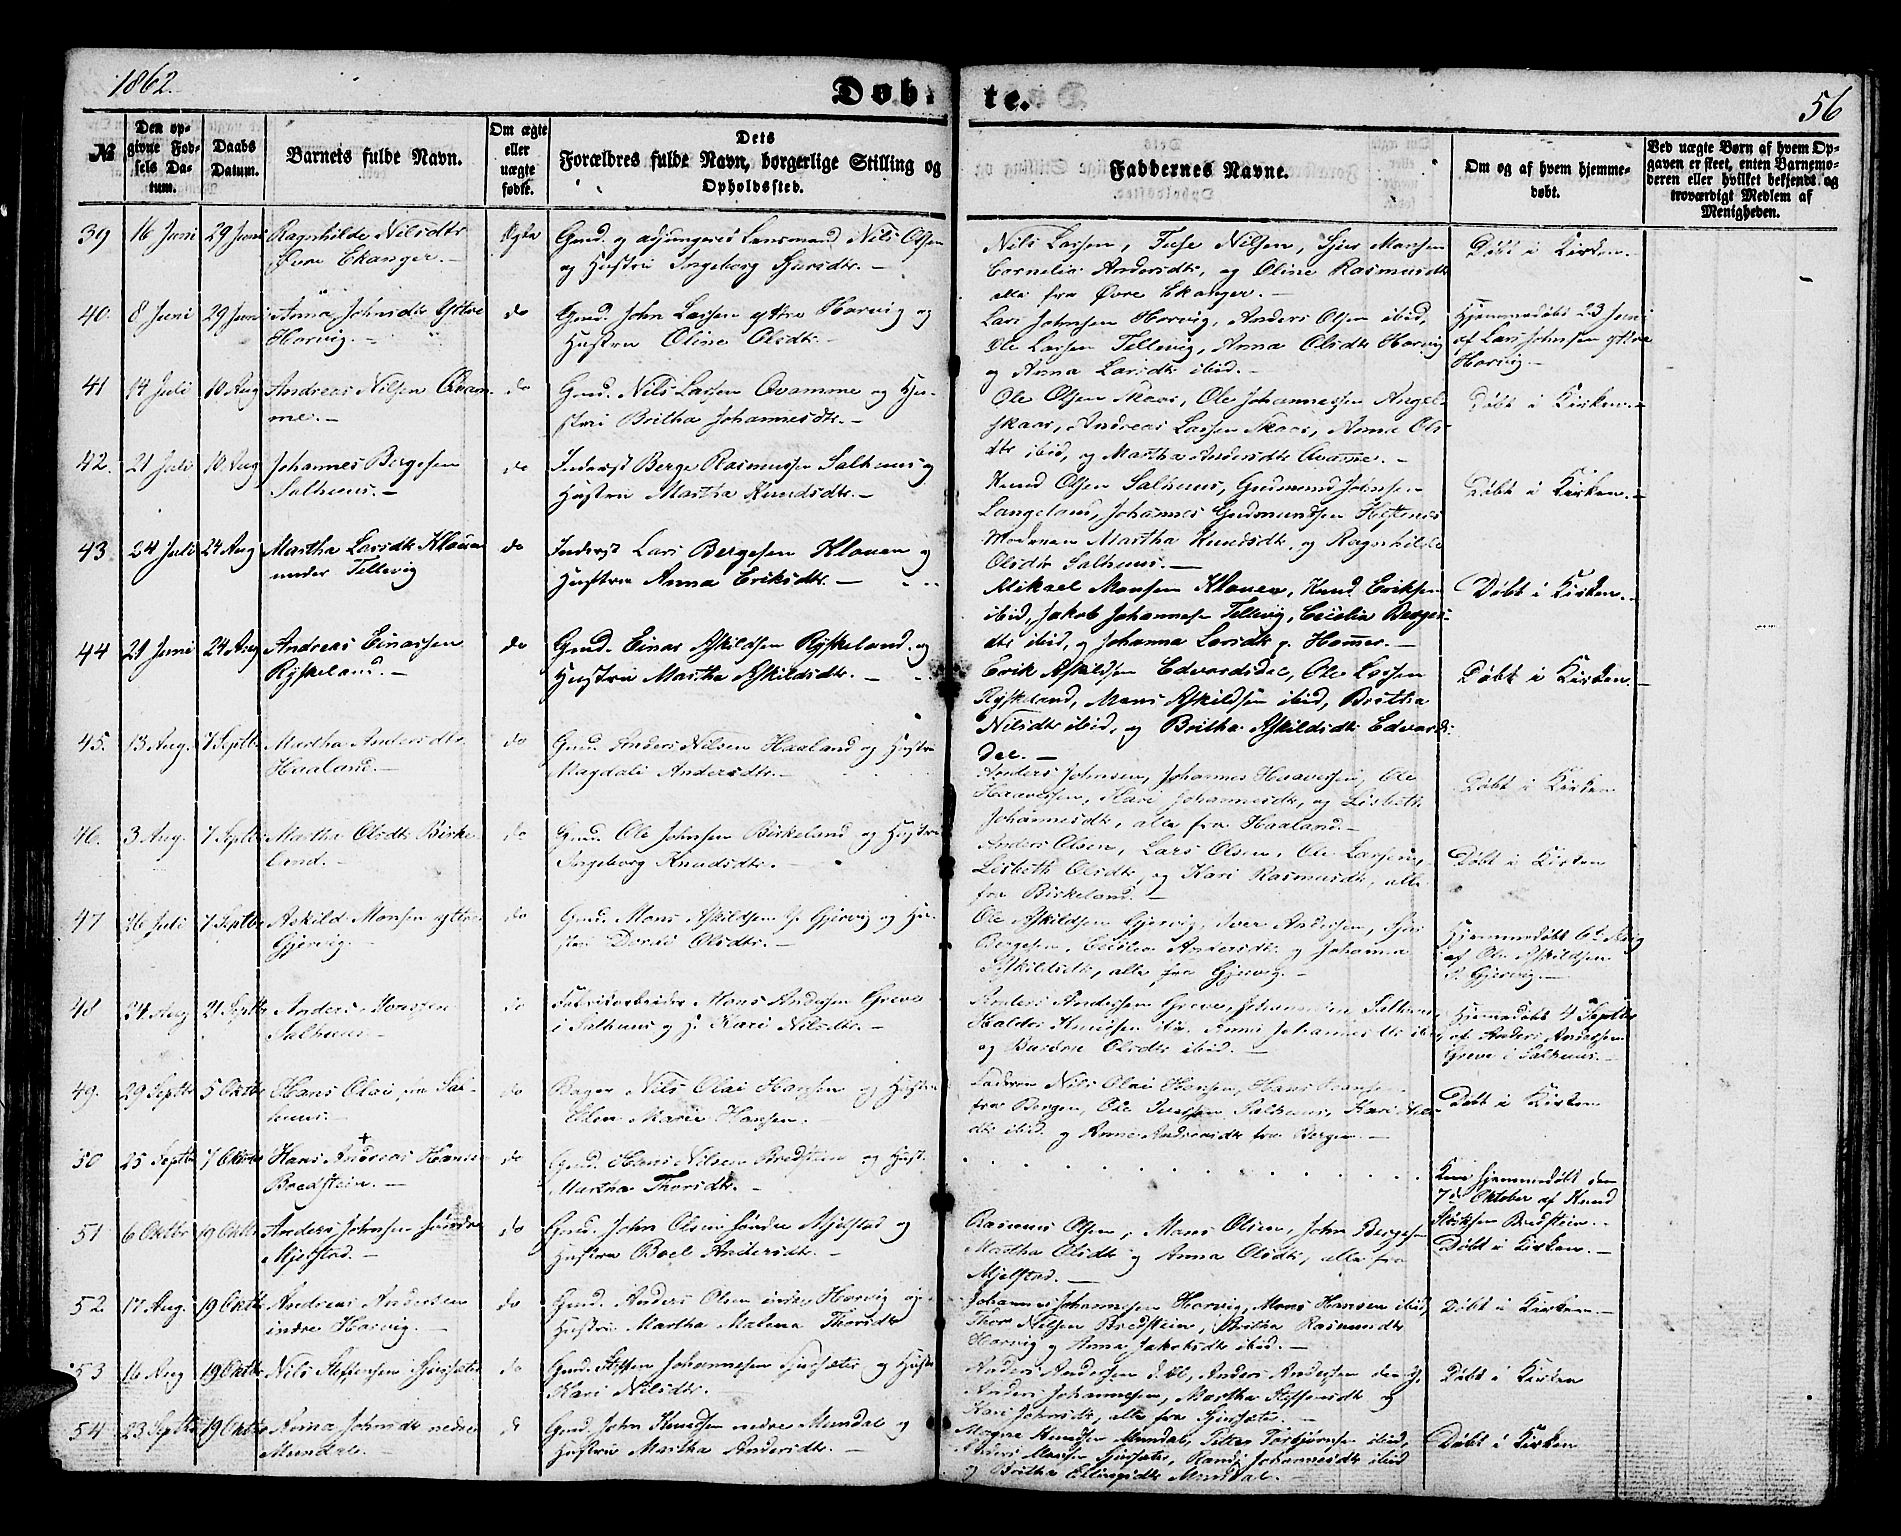 1862.
Døb-
te.
56
№
Den op-
givne Fød-
sels Da-
tum.
Daabs
Datum.
Barnets fulde Navn.
Om ægte
eller
uægte
født.
Dets
Forældres fulde Navn, borgerlige Stilling og
Opholdssted.
Faddernes Navne.
Om og af hvem hjemme-
døbt.
Ved uægte Børn af hvem Op-
gaven er skeet, enten Barnemo-
deren eller hvilket bekjendt og
troværdigt Medlem af
Menigheden.
39 16 Juni 29 Juni Ragnhilde Nilsdtr
Øvre Ekanger.-
Ægte
Gmd. og adjungeret Lensmand Nils Olsen
og Hustru Ingeborg Sjursdtr.-
Nils Larsen, Fuse Nilsen, Sjur Monsen
Cornelia Andersdtr, og Oline Rasmusdtr
alle fra Øvre Ekanger.-
Døbt i Kirken.
40. 8 Juni 29 Juni Anna Johnsdtr Yttre
Horvig.-
do
Gmd. John Larsen yttre Horvig og
Hustru Oline Olsdtr.-
Lars Johnsen Horvig, Anders Olsen ibid,
Ole Larsen Tellevig, Anna Olsdtr Horvig
og Anna Larsdtr ibid.-
Hjemmedøbt 23 Juni
af Lars Johnsen yttre
Horvig.-
41 14 Juli 10 Aug Andreas Nilsen Qvam-
me.-
do
Gmd. Nils Larsen Qvamme og Hu-
stru Britha Johannesdtr.-
Ole Olsen Skaar, Ole Johannessen Angel-
skaar, Andreas Larsen Skaar, Anna Ols-
dtr ibid, og Martha Andersdtr Qvamme.-
Døbt i Kirken.-
42. 21 Juli 10 Aug Johannes Bergesen
Salhuus.-
do
Inderst Berge Rasmussen Salhuus og
Hustru Martha Knudsdtr.-
Knud Olsen Salhuus, Gudmund Johnsen
Langeland, Johannes Gudmundsen Hettenes
Moderen Martha Knudsdtr, og Ragnhilde
Olsdtr Salhuus.-
Døbt i Kirken.-
43. 24 Juli 24 Aug Martha Larsdtr Klauen
under Tellevig
do
Inderst Lars Bergesen Klauen og
Hustru Anna Eriksdtr.-
Mikael Monsen Klauen, Knud Eriksen
ibid, Jakob Johannesen Tellevig, Cecilia Berges-
dtr ibid, og Johanna Larsdtr p. Hammer.-
Døbt i Kirken.-
44 21 Juni 24 Aug Andreas Einarsen
Rysskeland.-
do
Gmd. Einar Askildsen Rysskeland og
Hustru Martha Askildsdtr.-
Erik Askildsen Edvardsdal, Ole Larsen
Rysskeland, Mons Askildsen ibid, Britha
Nilsdtr ibid, og Britha Askildsdtr Edvards-
dal.-
Døbt i Kirken.-
45. 13 Aug. 7 Septbr Martha Andersdtr
Haaland.-
do
Gmd. Anders Nilsen Haaland og Hustru
Magdali Andersdtr.-
Anders Johnsen, Johannes Haavesen, Ole
Haavesen, Kari Johannesdtr, og Lisbeth
Johannesdtr, alle fra Haaland.-
Døbt i Kirken
46. 3 Aug. 7 Septbr Martha Olsdtr Birke-
land.-
do
Gmd. Ole Johnsen Birkeland og Hustru
Ingeborg Knudsdtr.-
Anders Olsen, Lars Olsen, Ole Larsen,
Lisbeth Olsdtr, og Kari Rasmusdtr, alle
fra Birkeland.-
Døbt i Kirken
47 26 Juli 7 Septbr Askild Monsen yttre
Gjervig.-
do
Gmd. Mons Askildsen y. Gjervig og Hu-
stru Dorid Olsdtr.-
Ole Askildsen Gjervig, Iver Andersen,
Bergesen, Cecilia Andersdtr og Johanna
Askildsdtr, alle fra Gjervig.-
Hjemmedøbt 6te Aug
af Ole Askildsen
Gjervig.-
48 24 Aug 21 Septbr Anders Monsen
Salhuus
do
Fabrikarbeider Mons Andersen Greve
i Salhuus og H. Kari Nilsdtr.-
Anders Andersen Greve,
Haldor Knudsen ibid, Anna Johannesdtr ibid,
og Olsdtr ibid.-
Hjemmedøbt 4 Septbr
af Anders Andersen
Greve i Salhuus.-
49. 29 Septbr 5 Oktbr Hans Olai, fra Sal-
huus.-
do
Bager Nils Olai Hansen og Hustru
Elen Marie Hansen.
Faderen Nils Olai Hansen, Hans Hansen
fra Bergen, Ole Iversen Salhuus, Kari
dtr ibid og Anne Andreasdtr fra Bergen.-
Døbt i Kirken
50 25 Septbr 7 Oktober Hans Andreas Hansen
Bredstein.-
do
Gmd. Hans Nilsen Bredstein og Hust.
Martha Thorsdtr.-
Kun hjemmedøbt den
7de Oktober af Knud
Bredstein.-
51 6 Oktbr 19 Oktbr Anders Johnsen søndre
Mjelstad.-
do
Gmd. John Olsen søndre Mjelstad og
Hustru Boel Andersdtr.-
Rasmus Olsen, Mons Olsen, John Bergesen
Martha Olsdtr og Anna Olsdtr, alle fra
Mjelstad.-
Døbt i Kirken.-
52. 17 Aug. 19 Oktbr Andreas Andersen
indre Horvig.-
do
Gmd. Anders Olsen indre Horvig og
Hustru Martha Malena Thorsdtr
Johannes Johannesen Horvig, Mons Hansen ibid,
Thor Nilsen Bredstein, Britha Rasmusdtr
Horvig og Anna Jakobsdtr ibid.-
Døbt i Kirken.-
53 16 Aug 19 Oktbr Nils Steffensen Sjursæter
do
Gmd. Steffen Johannesen Sjursæter og Hustru
Kari Nilsdtr.
Anders Andersen d. Æl, Anders Andersen den y,
Anders Johannesen, Martha Steffensdtr og
Kari Johnsdtr, alle fra Sjursæter.-
Døbt i Kirken
54. 23 Septbr 19 Oktbr Anna Johnsdtr nedre
Mundal.
d
Gmd. John Knudsen nedre Mundal og
Hustru Martha Andersdtr.-
Mogne Knudsen Mundal, Petter Torbjørnsen ibid,
Anders Monsen Sjursæter, Randi Johannesdtr ibid
og Britha Ellingsdtr Mundal.-
Døbt i Kirken